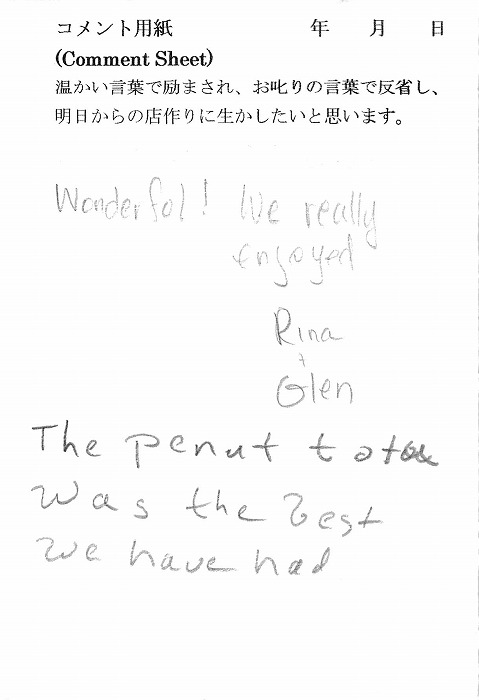 コメント用紙 年 月 日
(Comment Sheet)
温かい言葉で励まされ、お叱りの言葉で反省し、
明日からの店作りに生かしたいと思います。
Wonderful! We really
enjoyed
Rina
+
Glen
The penut
was the best
we have had